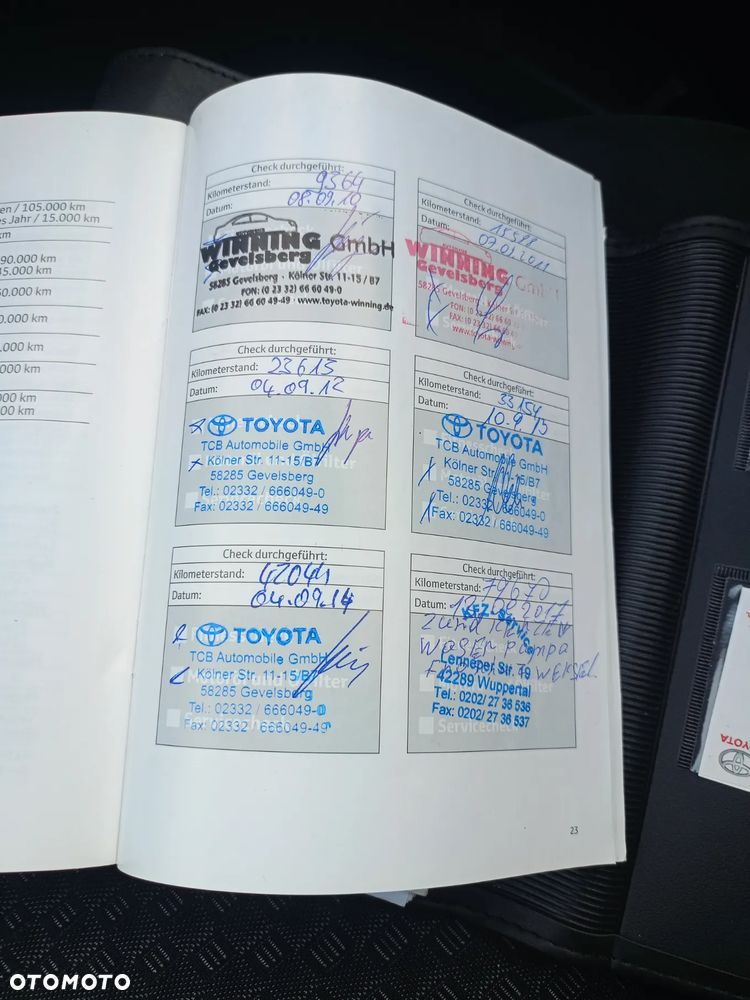 en / 105.000 km
es Jahr / 15.000 km
km
90.000 km
45.000 km
60.000 km
0.000 km
.000 km
.000 km
000 km
00 km
Check durchgeführt:
Kilometerstand: 9364
Datum: 08.09.10
WINNING GmbH
Gevelsberg
58285 Gevelsberg · Kölner Str. 11-15 / B7
FON: (0 23 32) 66 60 49-0
FAX: (0 23 32) 66 60 49-49 · www.toyota-winning.de
Check durchgeführt:
Kilometerstand:
Datum:
WINNING GmbH
Gevelsberg
58285 Gevelsberg
FON: (0 23 32) 66 60
FAX: (0 23 32) 66 60 4
www.toyota-winning
Check durchgeführt:
Kilometerstand: 23613
Datum: 04.09.12
TOYOTA
TCB Automobile GmbH
Kölner Str. 11-15/B7
58285 Gevelsberg
Tel.: 02332 / 666049-0
Fax: 02332 / 666049-49
Check durchgeführt:
Kilometerstand: 33154
Datum: 10.9.13
TOYOTA
TCB Automobile GmbH
Kölner Str. 11-15/B7
58285 Gevelsberg
Tel.: 02332 / 666049-0
Fax: 02332 / 666049-49
Check durchgeführt:
Kilometerstand: 42044
Datum: 04.09.14
TOYOTA
TCB Automobile GmbH
Kölner Str. 11-15/B7
58285 Gevelsberg
Tel.: 02332 / 666049-0
Servicecheck
Fax: 02332 / 666049-49
Check durchgeführt:
Kilometerstand: 79670
Datum: 2017
KFZ-Service
Wasser Pumpa
Lenneper Str. 49
42289 Wuppertal
Tel.: 0202/ 27 36 536
Fax: 0202/ 27 36 537
Servicecheck
23
TOYOTA
OTOMOTO